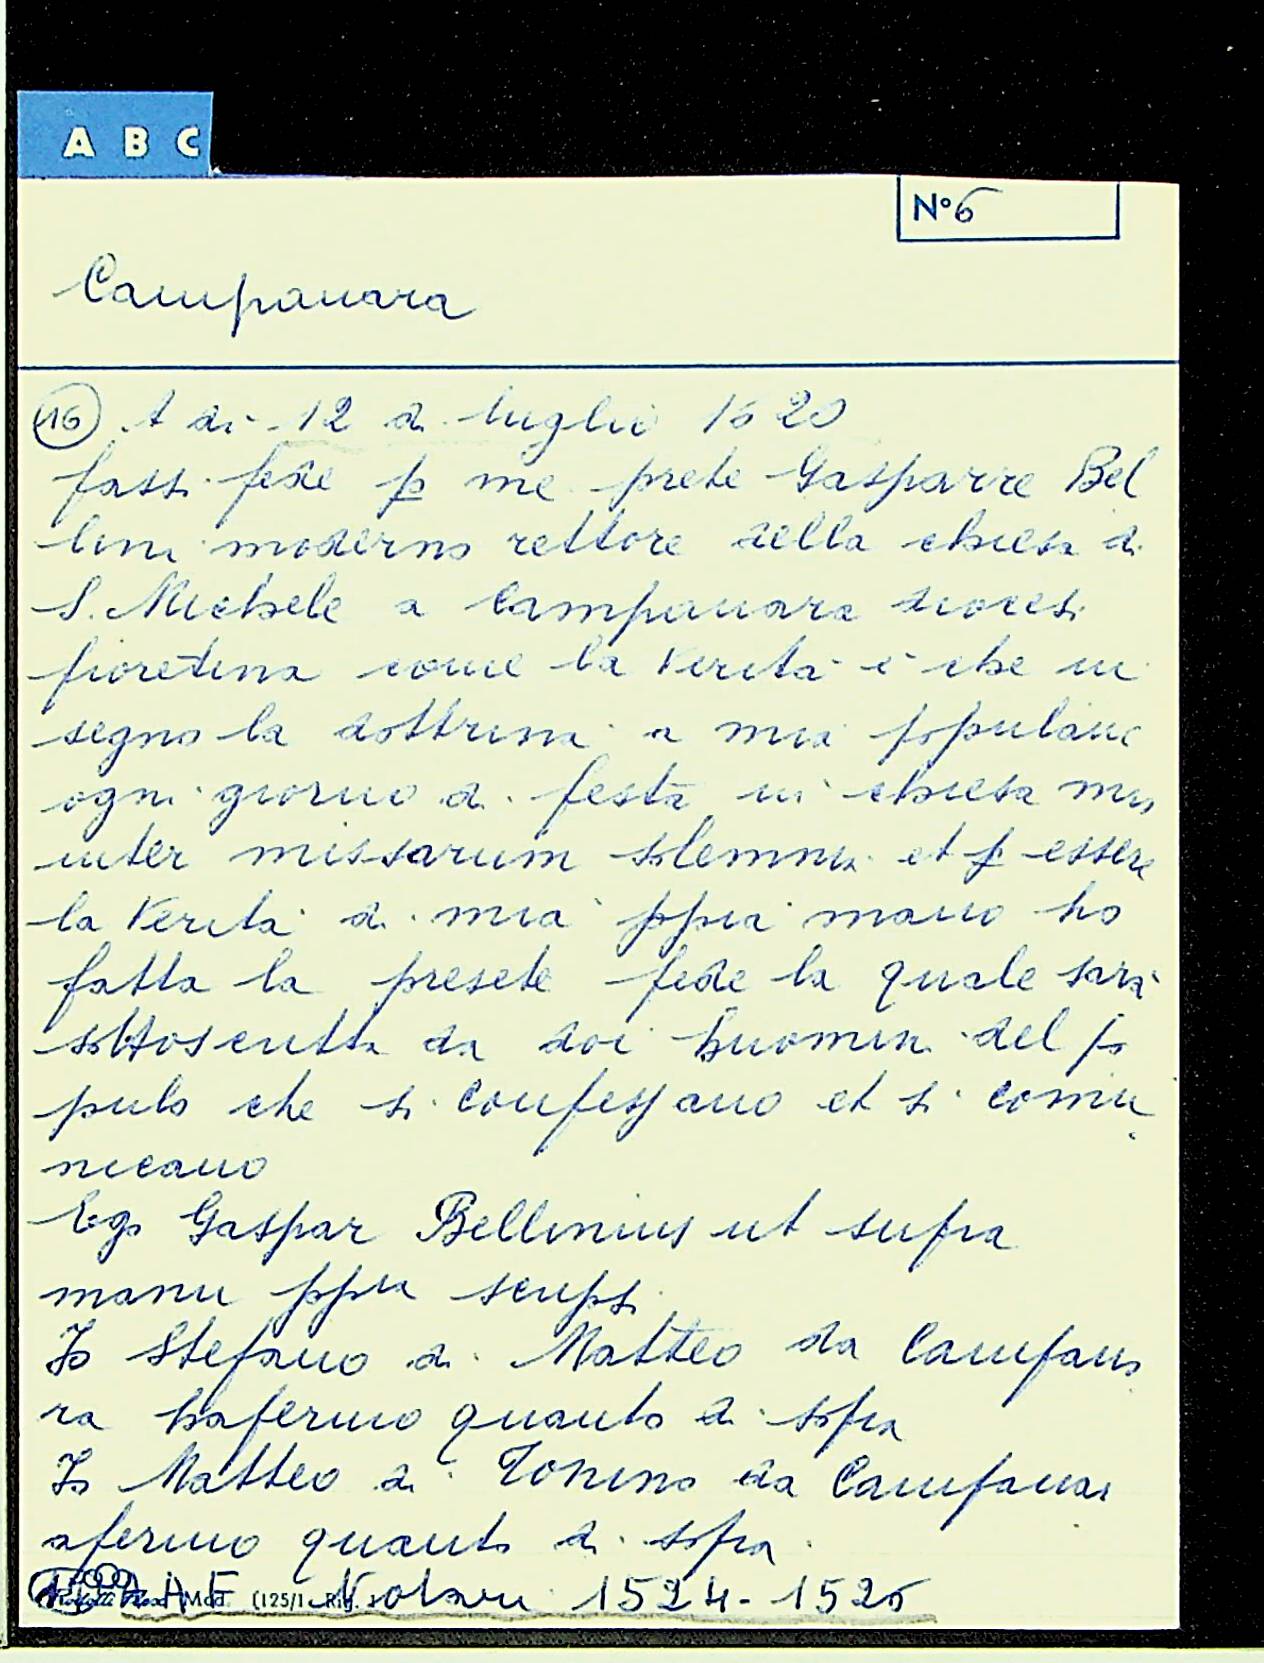 A B C
N° 6
Campanara
16 A di 12 di luglio 1620
fassi fede p me prete Gasparre Bel
lini moderno rettore della chiesa di
S. Michele a Campanara diocesi
fioretina come la Verità è che in
segno la dottrina a mia populani
ogni giorno di festa in chiesa mia
inter missarum solemnia et p essere
la Verità di mia ppia mano ho
fatta la presete fede la quale sarà
sottoscritta da doi huomini del po
pulo che si confessano et si comu
nicano
Ego Gaspar Bellinius ut supra
manu ppia scripsi
Io Stefano di Matteo da Campana
ra hafermo quanto di sopra
Io Matteo di Tonino da Campanar
afermo quanto di sopra
Mod. (125/1 Notari 1524-1526